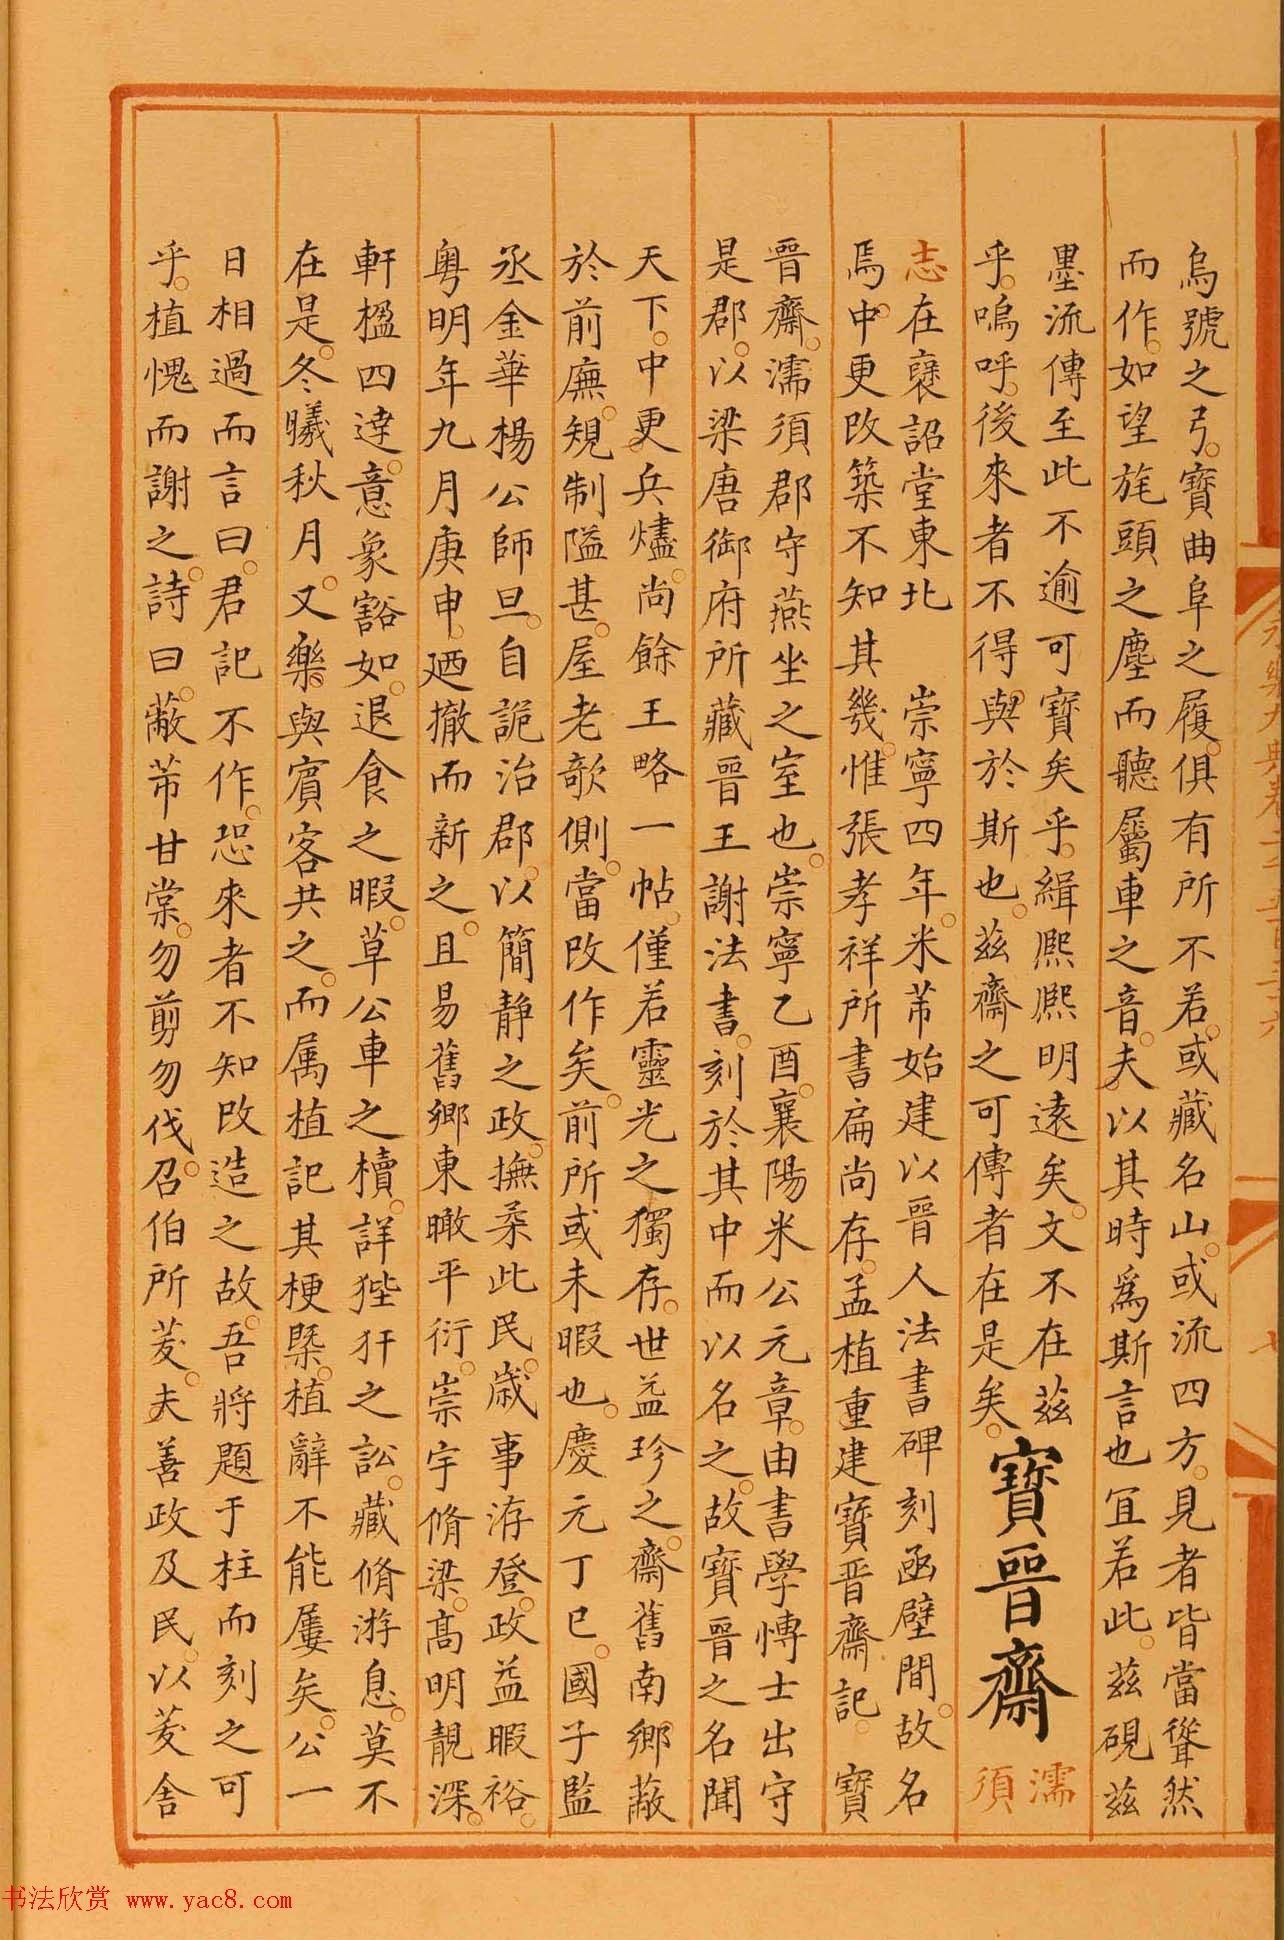 烏號之弓寶曲阜之履俱有所不若或藏名山或流四方見者皆當聳然
而作如望旄頭之塵而聽屬車之音夫以其時爲斯言也宜若此茲硯茲
墨流傳至此不逾可寶矣乎緝熙熙明遠矣文不在茲
乎嗚呼後來者不得與於斯也茲齋之可傳者在是矣
寶晉齋
濡
須
志在襃詔堂東北 崇寧四年米芾始建以晉人法書碑刻函壁間故名
焉中更改築不知其幾惟張孝祥所書扁尚存孟植重建寶晉齋記 寶
晉齋濡須郡守燕坐之室也崇寧乙酉襄陽米公元章由書學博士出守
是郡以梁唐御府所藏晉王謝法書刻於其中而以名之故寶晉之名聞
天下中更兵燼尚餘王略一帖僅若靈光之獨存世益珍之齋舊南鄉蔽
於前廡規制隘甚屋老欹側當改作矣前所或未暇也慶元丁巳國子監
丞金華楊公師旦自詭治郡以簡靜之政撫柔此民歲事洊登政益暇裕
粵明年九月庚申廼撤而新之且易舊鄉東瞰平衍崇宇脩梁高明靚深
軒楹四達意象豁如退食之暇草公車之牘詳狴犴之訟藏脩游息莫不
在是冬曦秋月又樂與賓客共之而属植記其梗槩植辭不能屢矣公一
日相過而言曰君記不作恐來者不知改造之故吾將題于柱而刻之可
乎植愧而謝之詩曰蔽芾甘棠勿剪勿伐召伯所茇夫善政及民以茇舍
书法欣赏 www.yac8.com